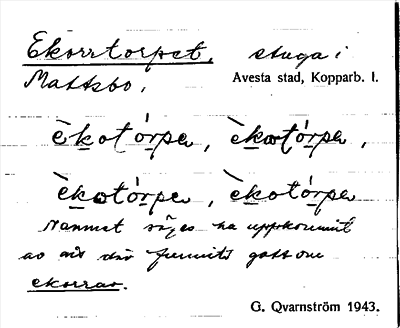 Ekorrtorpet, stuga i
Mattsbo, Avesta stad, Kopparb. l.
èkotórpe, èkotórpe,
èkotórpe, èkotórpe
Namnet säges ha uppkommit
av att där funnits gott om
ekorrar.
G. Qvarnström 1943.